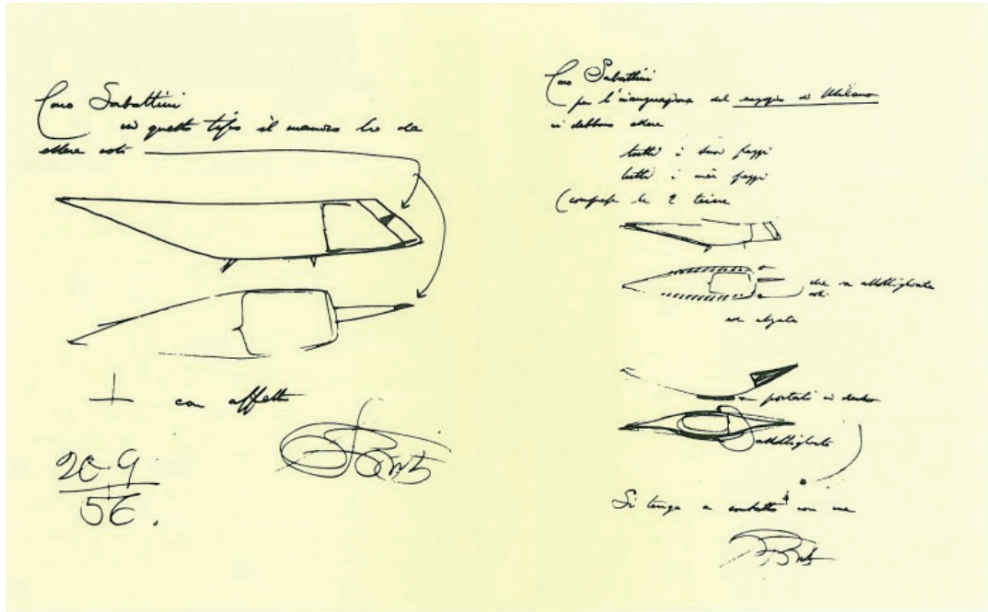 Caro Sabattini
in questo tipo il manico ha da
essere così
con affetto
20.9
56.
Caro Sabattini
per l'inaugurazione del negozio di Milano
vi debbono essere
tutti i suoi pezzi
tutti i miei pezzi
(compreso le 2
che va assottigliata
così
ed alzata
portati in
assottigliato
Si tenga a contatto con me